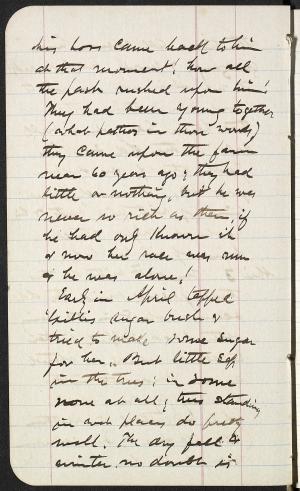 his loss came back to him
at that moment! how all
the past rushed upon him!
They had been young together
(what pathos in those words)
they came upon the farm
near 60 years ago; they had
little or nothing, but he was
never so rich as then, if
he had only known it
& now her race was run
& he was alone!
Early in April tapped
sugar bush &
tried to make some sugar
for her. But little sap
in the trees; in some
none at all; trees standing
in wet places do pretty
well. The dry fall &
winter no doubt is